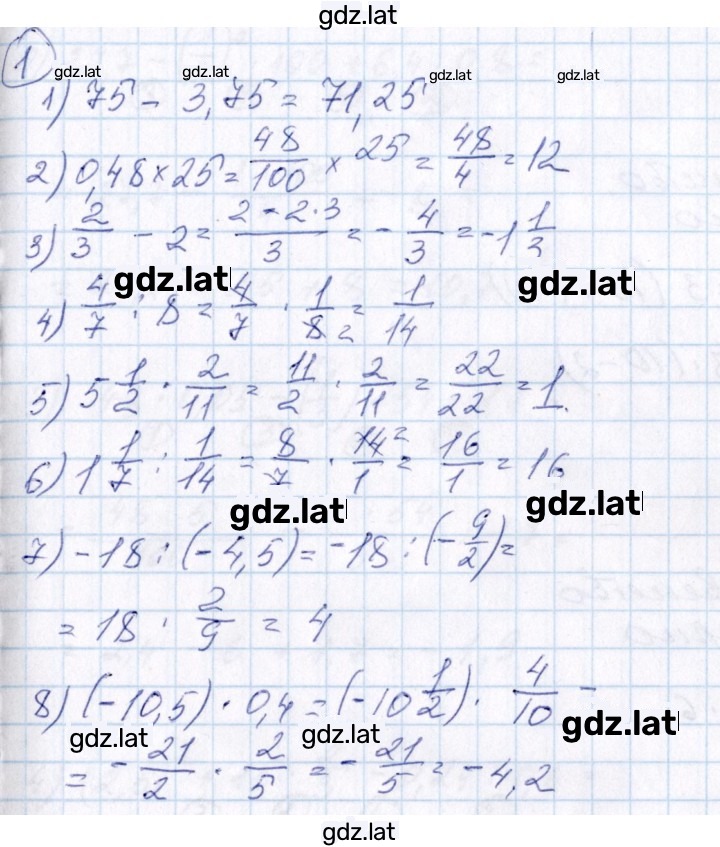 gdz.lat
1
gdz.lat gdz.lat gdz.lat gdz.lat
1) 75 - 3,75 = 71,25
2) 0,48 × 25 = 48/100 × 25 = 48/4 = 12
3) 2/3 - 2 = (2 - 2·3)/3 = - 4/3 = -1 1/3
gdz.lat gdz.lat
4) 4/7 : 8 = 4/7 · 1/8 2 = 1/14
5) 5 1/2 · 2/11 = 11/2 · 2/11 = 22/22 = 1.
6) 1 1/7 : 1/14 = 8/7 · 14 2/1 = 16/1 = 16
gdz.lat gdz.lat
7) -18 : (-4,5) = -18 : (-9/2) =
= 18 · 2/9 = 4
8) (-10,5) · 0,4 = (-10 1/2) · 4/10 =
gdz.lat gdz.lat gdz.lat
= - 21/2 · 2/5 = - 21/5 = -4,2
gdz.lat